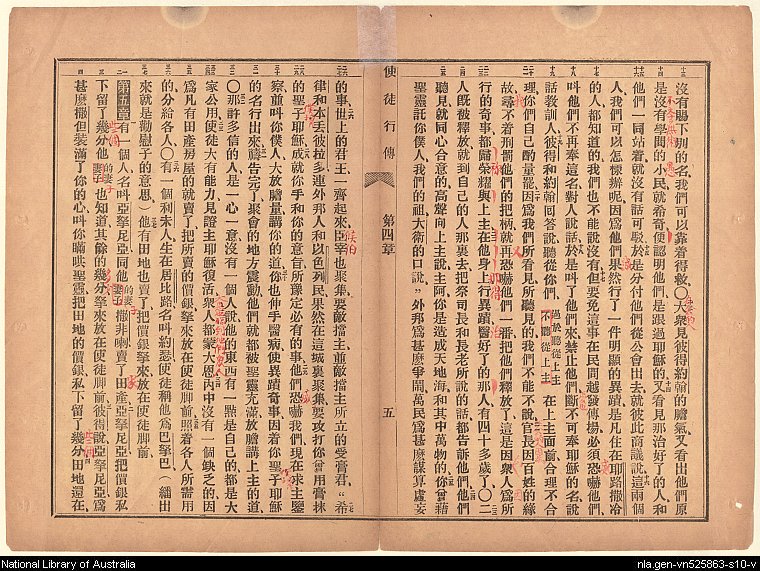 沒有賜下別的名我們可以靠着得救〇大衆見彼得約翰的膽氣又看出他們原
是沒有學問的小民就希奇便認明他們是跟過耶穌的又看見那治好了的人和
他們一同站着就沒有話可駁於是分付他們從公會出去就彼此商議說這兩個
人我們可以怎樣辦呢因爲他們果然行了一件明顯的異蹟是凡住在耶路撒冷
的人都知道的我們也不能說沒有但要免這事在民間越發傳揚必須恐嚇他們
叫他們不再奉這名對人說話於是叫了他們來禁止他們斷不可奉耶穌的名說
話敎訓人彼得和約翰回答說聽從你們過於聽從上主不聽從上主在上主面前合理不合
理你們自己酌量罷因爲我們所看見所聽見的我們不能不說官長因百姓的緣
故尋不着刑罰他們的把柄就再恐嚇他們一番把他們釋放了這是因衆人爲所
行的奇事都歸榮耀與上主在他身上行異蹟醫好了的那人有四十多歲了〇二
人旣被釋放就到自己的人那裏去把祭司長和長老所說的話都告訴他們他們
聽見就同心合意的高聲向上主說主阿你是造成天地海和其中萬物的你曾藉
聖靈託你僕人我們的祖大衛的口說〝外邦爲甚麼爭鬧萬民爲甚麼謀算虛妄
使徒行傳 第四章 五
的事世上的君王一齊起來臣宰也聚集要敵擋主並敵擋主所立的受膏君〟希
律和本丟彼拉多連外邦人和以色列民果然在這城裏聚集要攻打你曾用膏抹
的聖子耶穌成就你手和你的意旨所豫定必有的事他們恐嚇我們現在求主鑒
察並叫你僕人大放膽量講你的道你也伸手醫病使異蹟奇事因着你聖子耶穌
的名行出來禱告完了聚會的地方震動他們就都被聖靈充滿放膽講上主的道
〇那許多信的人是一心一意沒有一個人說他的東西有一點是自己的都是大
家公用使徒大有能力見證主耶穌復活衆人都蒙大恩內中沒有一個缺乏的因
爲凡有田產房屋的就賣了把所賣的價銀拏來放在使徒脚前照着各人所需用
的分給各人〇有一個利未人生在居比路名叫約瑟使徒稱他爲巴拏巴(繙出
來就是勸慰子的意思)他有田地也賣了把價銀拏來放在使徒脚前
第五章有一個人名叫亞拏尼亞同他的妻子撒非喇賣了田產亞拏尼亞把價銀私
下留了幾分他的妻子也知道其餘的幾分拏來放在使徒脚前彼得說亞拏尼亞爲
甚麼撒但裝滿了你的心叫你瞞哄聖靈把田地的價銀私下留了幾分田地還在
National Library of Australia
nla.gen-vn525863-s10-v